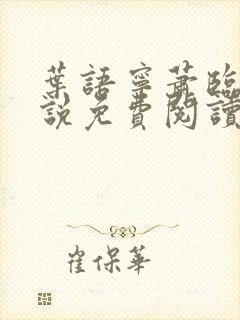 葉語寧蕭臨
說免費閱讀
崔保華